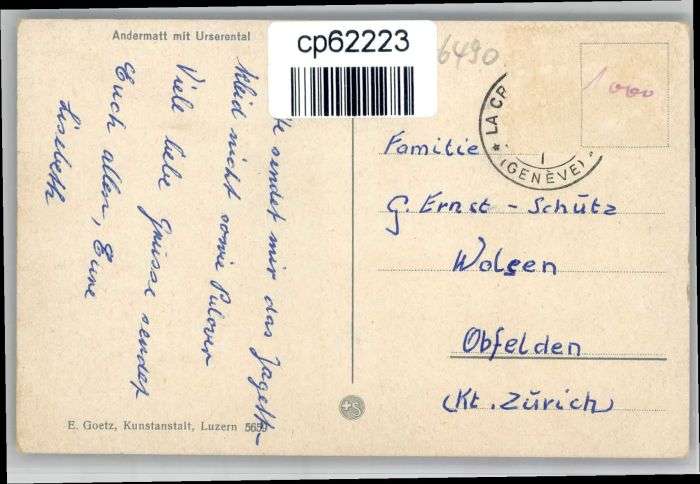 Andermatt mit Urserental
cp62223
6490
1000
LA CR
(GENÈVE)
sendet mir das Jagett-
Kleid nicht sowie Pulover
Viele liebe Grüsse sendet
Euch allen, Eure
Lisebeth
Familie
G. Ernst - Schütz
Wolsen
Obfelden
(Kt. Zürich)
E. Goetz, Kunstanstalt, Luzern 5659